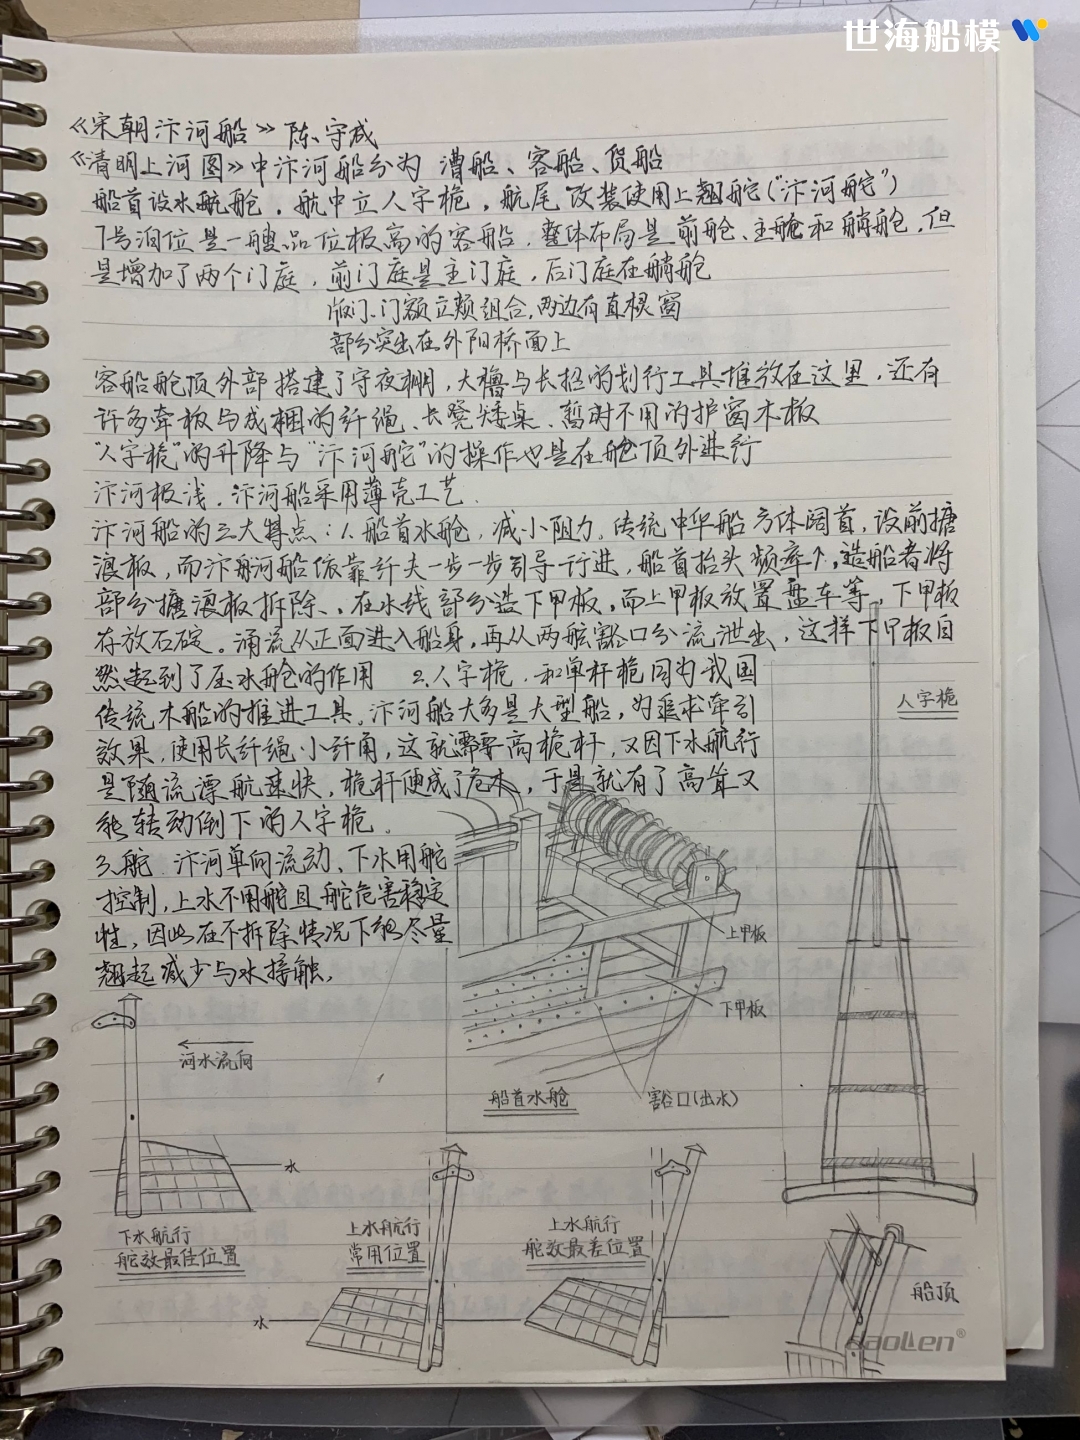 世海船模
《宋朝汴河船》 陈守成
《清明上河图》中汴河船分为 漕船、客船、货船
船首设水航舱，航中立人字桅，航尾改装使用上翘舵("汴河舵")
7号泊位是一艘品位极高的客船，整体布局是前舱、主舱和艄舱，但
是增加了两个门庭，前门庭是主门庭，后门庭在艄舱
版门、门额立颊组合，两边有直棂窗
部分突出在外阳桥面上
客船舱顶外部搭建了守夜棚，大橹与长招的划行工具堆放在这里，还有
许多牵板与成捆的纤绳、长凳矮桌、暂时不用的护窗木板
"人字桅"的升降与"汴河舵"的操作也是在舱顶外进行
汴河极浅，汴河船采用薄壳工艺
汴河船的三大特点：1、船首水舱，减小阻力。传统中华船方体阔首，设前搪
浪板，而汴河船依靠纤夫一步一步引导行进，船首抬头频率个，造船者将
部分搪浪板拆除、，在水线部分造下甲板，而上甲板放置盘车等，下甲板
存放石碇。涌流从正面进入船身，再从两舷豁口分流泄出，这样下甲板自
然起到了压水舱的作用 2、人字桅，和单杆桅同为我国
传统木船的推进工具。汴河船大多是大型船，为追求牵引
效果，使用长纤绳小纤角，这就需要高桅杆，又因下水航行
是随流漂航速快，桅杆便成了危木，于是就有了高耸又
能转动倒下的人字桅。
3、舵 汴河单向流动、下水用舵
控制，上水不用舵且舵危害稳定
性，因此在不拆除情况下能尽量
翘起减少与水接触，
人字桅
上甲板
下甲板
船首水舱
豁口(出水)
河水流向
水
下水航行
舵效最佳位置
上水航行
常用位置
上水航行
舵效最差位置
水
船顶